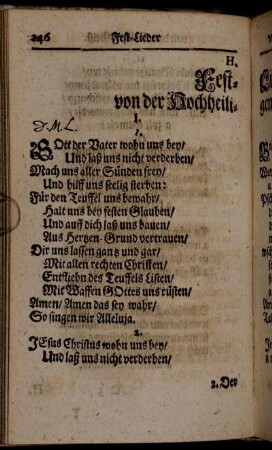 246 Fest-Lieder
H.
Fest-
von der Hochheili-
I.
D. M. L.
1.
GOtt der Vater wohn uns bey/
Und laß uns nicht verderben/
Mach uns aller Sünden frey/
Und hilff uns seelig sterben:
Für den Teuffel uns bewahr/
Halt uns bey festen Glauben/
Und auff dich laß uns bauen/
Aus Hertzen-Grund vertrauen/
Dir uns lassen gantz und gar/
Mit allen rechten Christen/
Entfliehn des Teuffels Listen/
Mit Waffen GOttes uns rüsten/
Amen/ Amen das sey wahr/
So singen wir Alleluja.
2.
JEsus Christus wohn uns bey/
Und laß uns nicht verderben/
2. Der